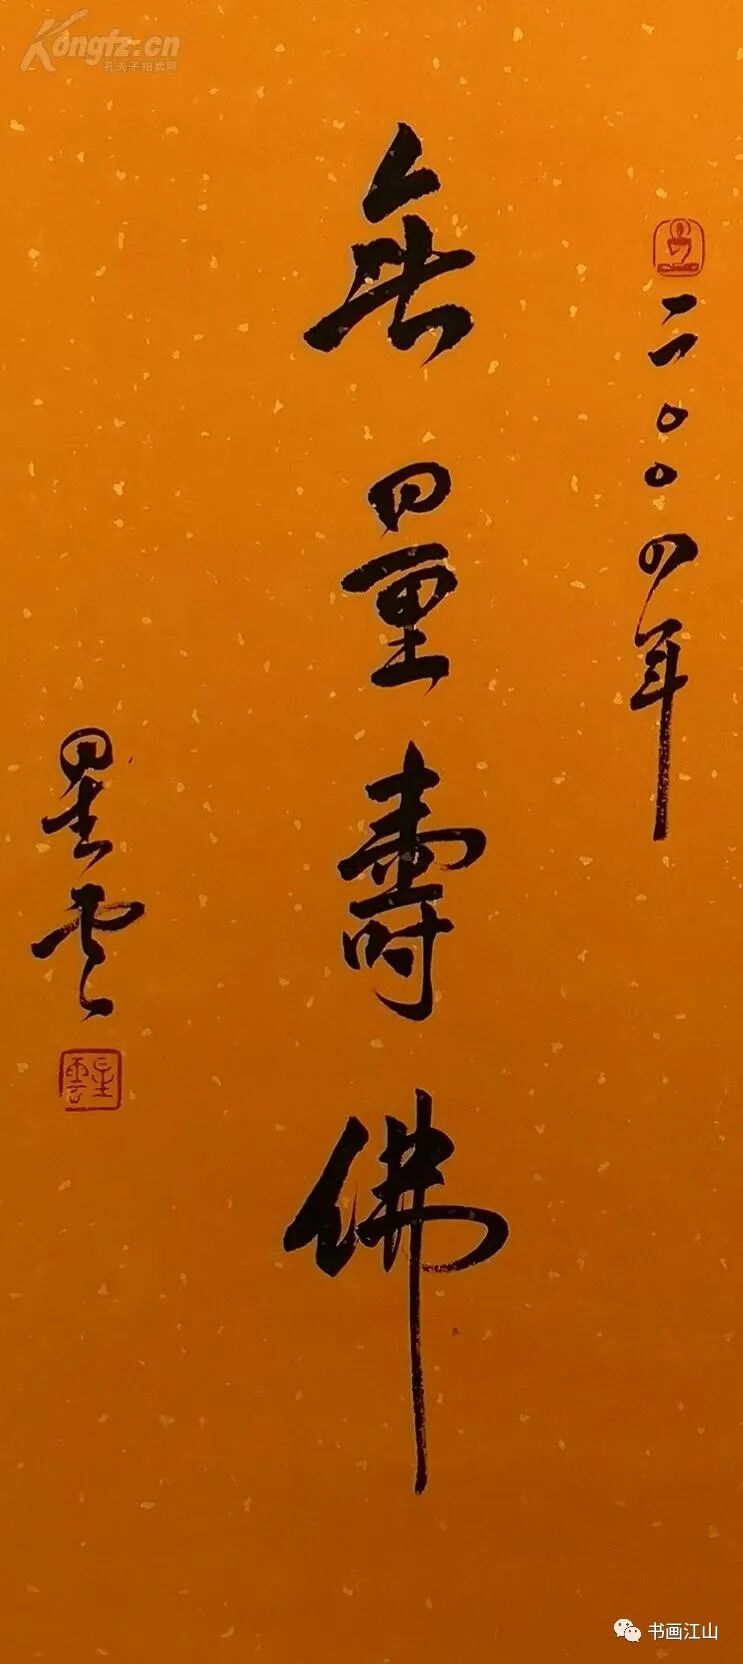 Kongfz.cn
孔夫子拍卖网
二〇〇四年
無量壽佛
星雲
星雲
书画江山